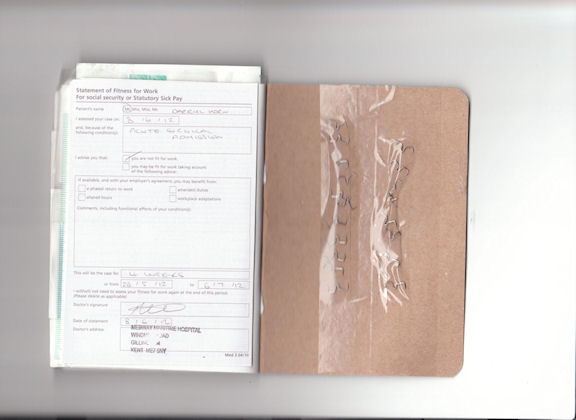 Statement of Fitness for Work
For social security or Statutory Sick Pay
Patient's name Mr, Mrs, Miss, Ms
I assessed your case on: 8 / 6 / 12
and, because of the following condition(s): ACUTE
ADMISSION
I advise you that: you are not fit for work.
you may be fit for work taking account
of the following advice:
If available, and with your employer's agreement, you may benefit from:
a phased return to work amended duties
altered hours workplace adaptations
Comments, including functional effects of your condition(s):
This will be the case for WEEKS
or from / 12 to 6 / 7 / 12
I will/will not need to assess your fitness for work again at the end of this period.
(Please delete as applicable)
Doctor's signature
Date of statement 8 / 6 / 12
Doctor's address MEDWAY MARITIME HOSPITAL
KENT ME7 5NY
Med 3 04/10